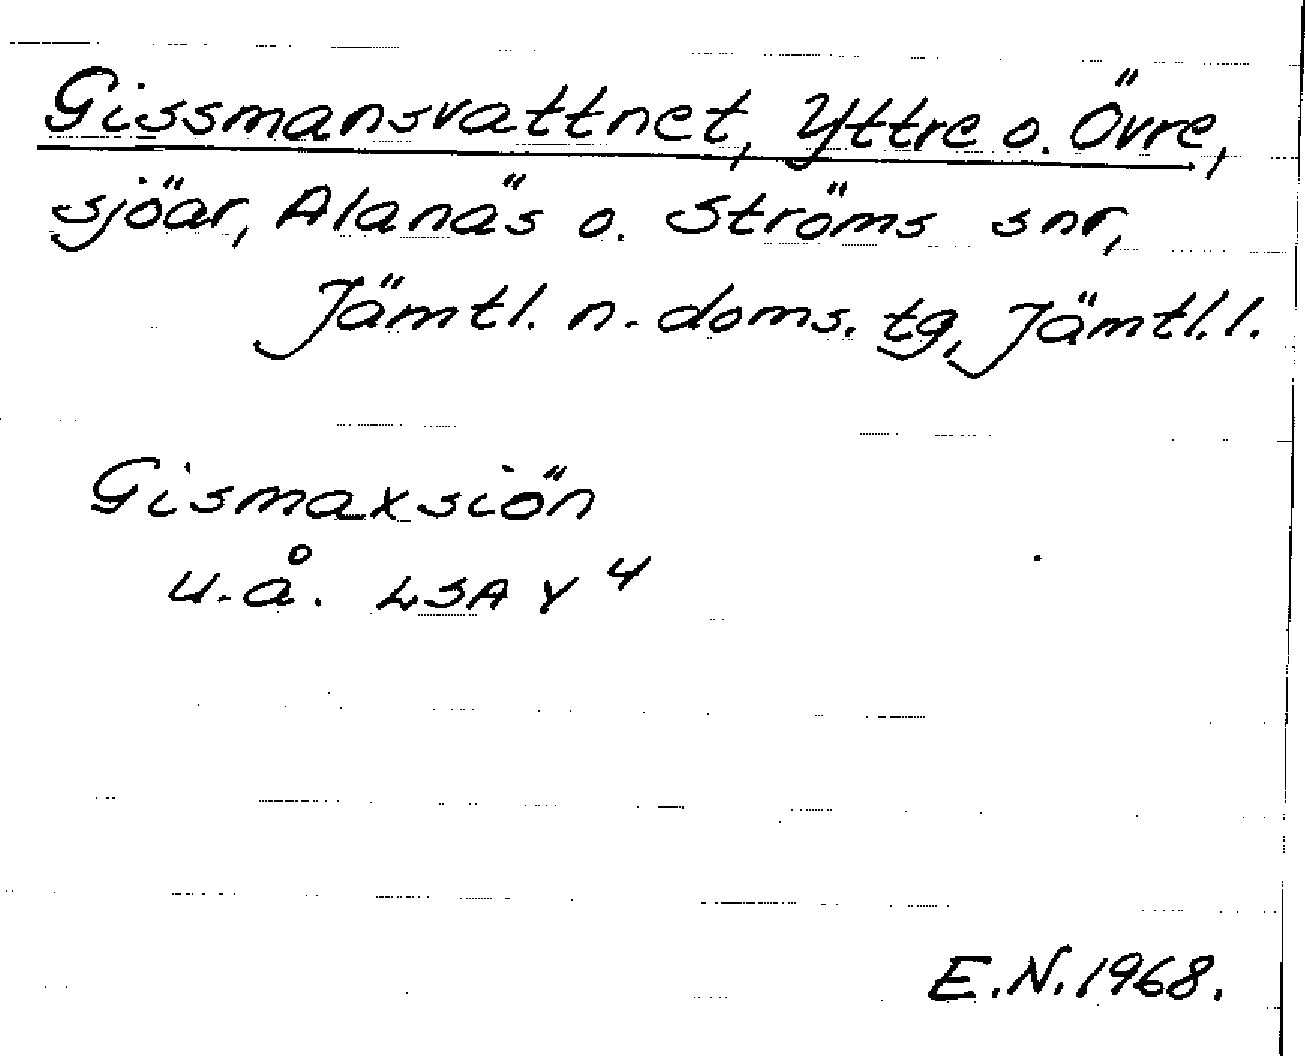 Gissmansvattnet, Yttre o. Övre,
sjöar, Alanäs o. Ströms snr,
Jämtl. n. doms. tg, Jämtl. l.
Gismaxsiön
u.å. LSA Y 4
E.N. 1968.